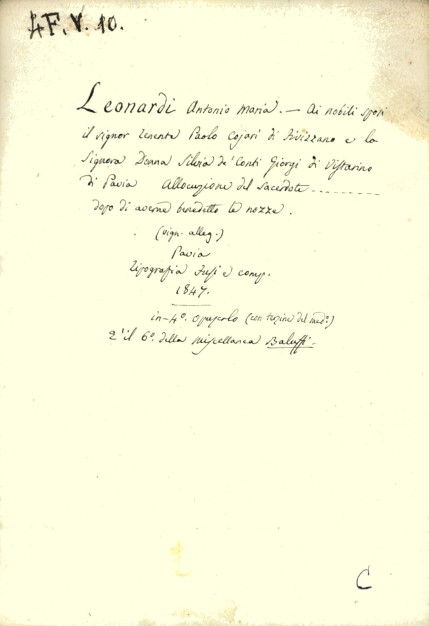 4F.V. 10.
Leonardi Antonio Maria. — Ai nobili sposi
il signor tenente Paolo Cojari di Fivizzano e la
Signora Donna Silvia de' Conti Giorgi di Vistarino
di Pavia Allocuzione del sacerdote ...........
dopo di averne benedette le nozze.
(vign. alleg.)
Pavia
Tipografia Fusi e comp.
1847.
in-4º. opuscolo (con terzine del med.º)
È il 6º. della miscellanea Baluffi.
C